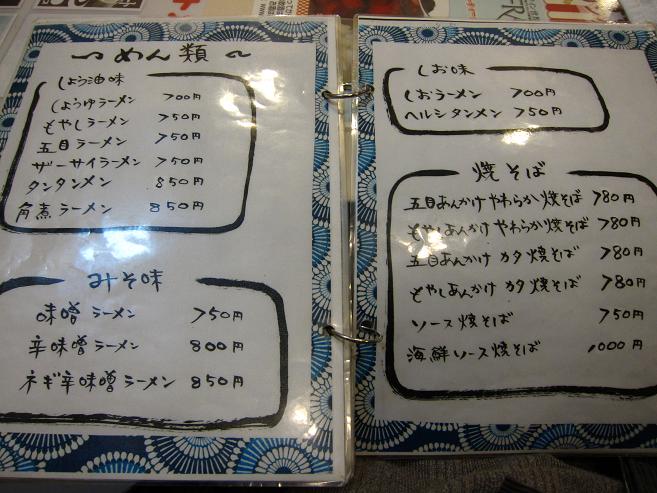 〜めん類〜
しょう油味
しょうゆラーメン 700円
もやしラーメン 750円
五目ラーメン 750円
ザーサイラーメン 750円
タンタンメン 850円
角煮ラーメン 850円
みそ味
味噌ラーメン 750円
辛味噌ラーメン 800円
ネギ辛味噌ラーメン 850円
しお味
しおラーメン 700円
ヘルシタンメン 750円
焼そば
五目あんかけやわらか焼そば 780円
もやしあんかけやわらか焼そば 780円
五目あんかけカタ焼そば 780円
もやしあんかけカタ焼そば 780円
ソース焼そば 750円
海鮮ソース焼そば 1000円